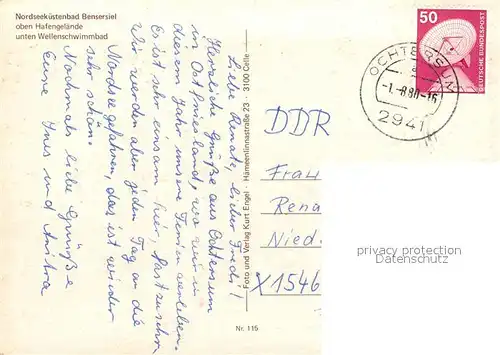 Nordseeküstenbad Bensersiel
oben Hafengelände
unten Wellenschwimmbad
Liebe Renate, lieber Fredi!
Herzliche Grüße aus Ochtersum
in Ostfriesland, wo wir in
diesem Jahr unsere Ferien verleben.
Es ist sehr einsam hier fast zu sehr
Wir werden aber jeden Tag an die
Nordsee gefahren, das ist wieder
sehr schön.
Nochmals liebe Grüße
Eure und
Foto und Verlag Kurt Engel · Hämeenlinnastraße 23 · 3100 Celle
Nr. 115
50
DEUTSCHE BUNDESPOST
OCHTERSUM
-1.-8.80-16
2941
DDR
Frau
Rena
Nied
X1546
privacy protection
Datenschutz